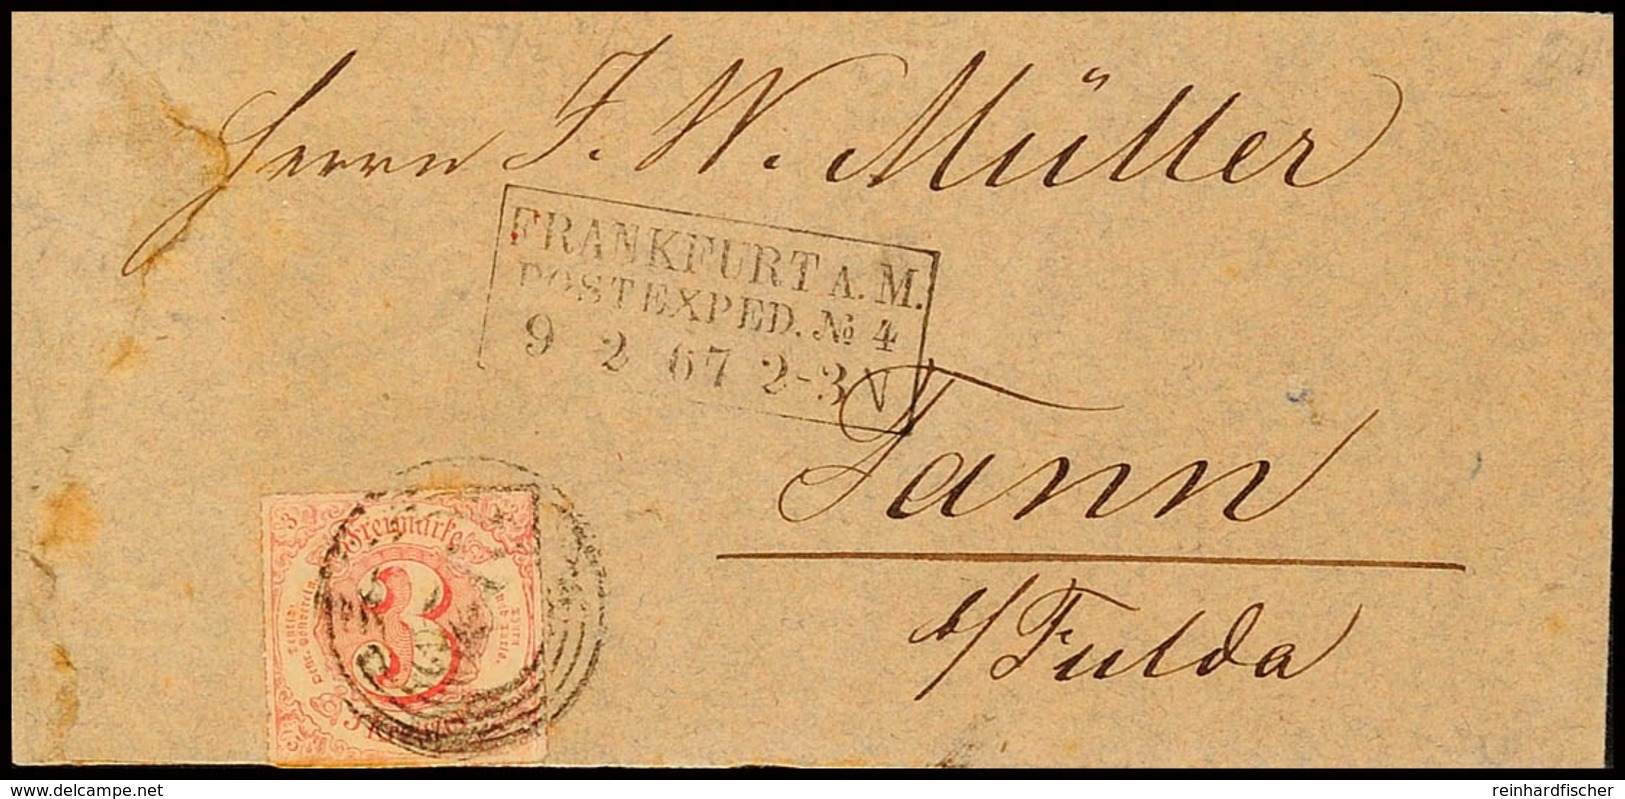 Herrn J. W. Müller
FRANKFURT A. M.
POSTEXPED. No 4
9 2 67 2-3 N
Tann
b/ Fulda
3
Freimarke
3
3 Kreuzer
www.delcampe.net
reinhardfischer